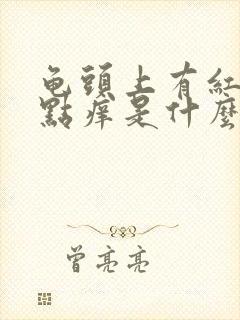 龟頭上有紅
點痒是什麼
曾亮亮